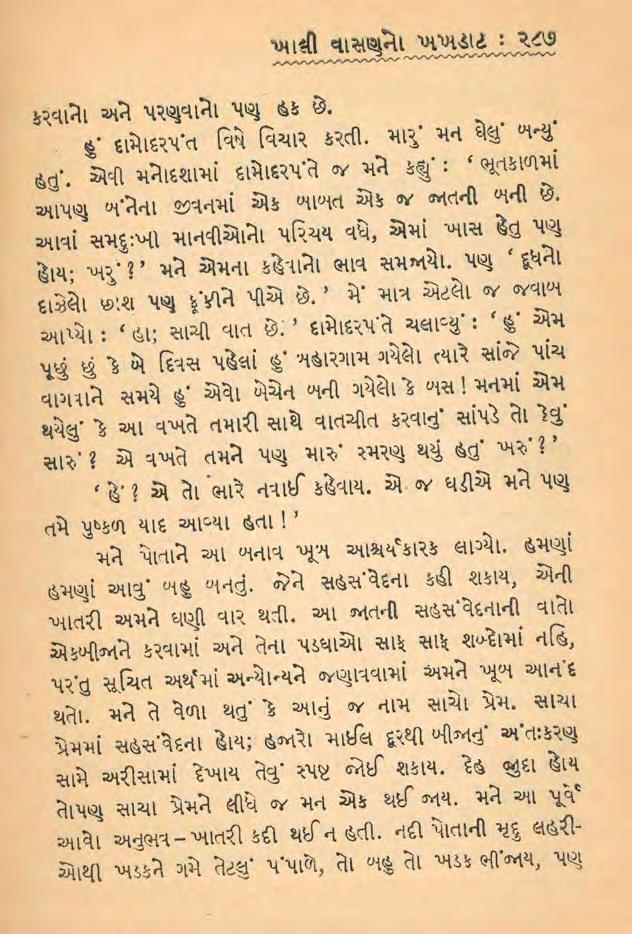 ખાલી વાસણનો ખખડાટ : ૨૮૭
કરવાનો અને પરણવાનો પણ હક છે.
હું દામોદરપંત વિષે વિચાર કરતી. મારું મન ઘેલું બન્યું
હતું. એવી મનોદશામાં દામોદરપંતે જ મને કહ્યું : ‘ ભૂતકાળમાં
આપણ બંનેના જીવનમાં એક બાબત એક જ જાતની બની છે.
આવાં સમદુઃખી માનવીઓનો પરિચય વધે, એમાં ખાસ હેતુ પણ
હોય; ખરું ? ’ મને એમના કહેવાનો ભાવ સમજાયો. પણ ‘ દૂધનો
દાઝેલો છાશ પણ ફૂંકીને પીએ છે. ’ મેં માત્ર એટલો જ જવાબ
આપ્યો : ‘ હા; સાચી વાત છે. ’ દામોદરપંતે ચલાવ્યું : ‘ હું એમ
પૂછું છું કે બે દિવસ પહેલાં હું બહારગામ ગયેલો ત્યારે સાંજે પાંચ
વાગવાને સમયે હું એવો બેચેન બની ગયેલો કે બસ ! મનમાં એમ
થયેલું કે આ વખતે તમારી સાથે વાતચીત કરવાનું સાંપડે તો કેવું
સારું ? એ વખતે તમને પણ મારું સ્મરણ થયું હતું ખરું ? ’
‘ હેં ? એ તો ભારે નવાઈ કહેવાય. એ જ ઘડીએ મને પણ
તમે પુષ્કળ યાદ આવ્યા હતા ! ’
મને પોતાને આ બનાવ ખૂબ આશ્ચર્યકારક લાગ્યો. હમણાં
હમણાં આવું બહુ બનતું. જેને સહસંવેદના કહી શકાય, એની
ખાતરી અમને ઘણી વાર થતી. આ જાતની સહસંવેદનાની વાતો
એકબીજાને કરવામાં અને તેના પડઘાઓ સાફ સાફ શબ્દોમાં નહિ,
પરંતુ સૂચિત અર્થમાં અન્યોન્યને જણાવવામાં અમને ખૂબ આનંદ
થતો. મને તે વેળા થતું કે આનું જ નામ સાચો પ્રેમ. સાચા
પ્રેમમાં સહસંવેદના હોય; હજારો માઈલ દૂરથી બીજાનું અંતઃકરણ
સામે અરીસામાં દેખાય તેવું સ્પષ્ટ જોઈ શકાય. દેહ જુદા હોય
તોપણ સાચા પ્રેમને લીધે જ મન એક થઈ જાય. મને આ પૂર્વે
આવો અનુભવ – ખાતરી કદી થઈ ન હતી. નદી પોતાની મૃદુ લહરી-
ઓથી ખડકને ગમે તેટલું પંપાળે, તો બહુ તો ખડક ભીંજાય, પણ